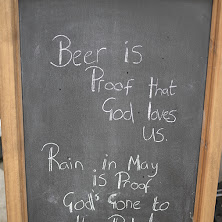 Beer is
Proof that
God loves
us.
Rain in May
is Proof
God's Gone to
the